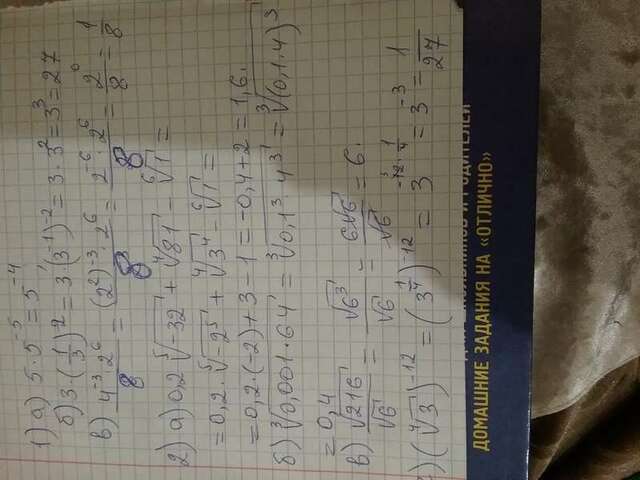 1) а) 5·5^-5 = 5^-4
б) 3·(1/3)^-2 = 3·(3^-1)^-2 = 3·3^2 = 3^3 = 27
в) 4^-3·2^6/8 = (2^2)^-3·2^6/8 = 2^-6·2^6/8 = 2^0/8 = 1/8
2) а) 0,2 ⁵√-32 + ⁴√81 - ⁶√1 =
= 0,2·⁵√-2^5 + ⁴√3^4 - ⁶√1 =
= 0,2·(-2)+3-1 = -0,4+2 = 1,6.
б) ³√0,001·64 = ³√0,1^3·4^3 = ³√(0,1·4)^3
= 0,4
в) √216/√6 = √6^3/√6 = 6√6/√6 = 6.
) (⁴√3)^-12 = (3^1/4)^-12 = 3^-12·1/4 = 3^-3 = 1/27
ДОМАШНИЕ ЗАДАНИЯ НА «ОТЛИЧНО»